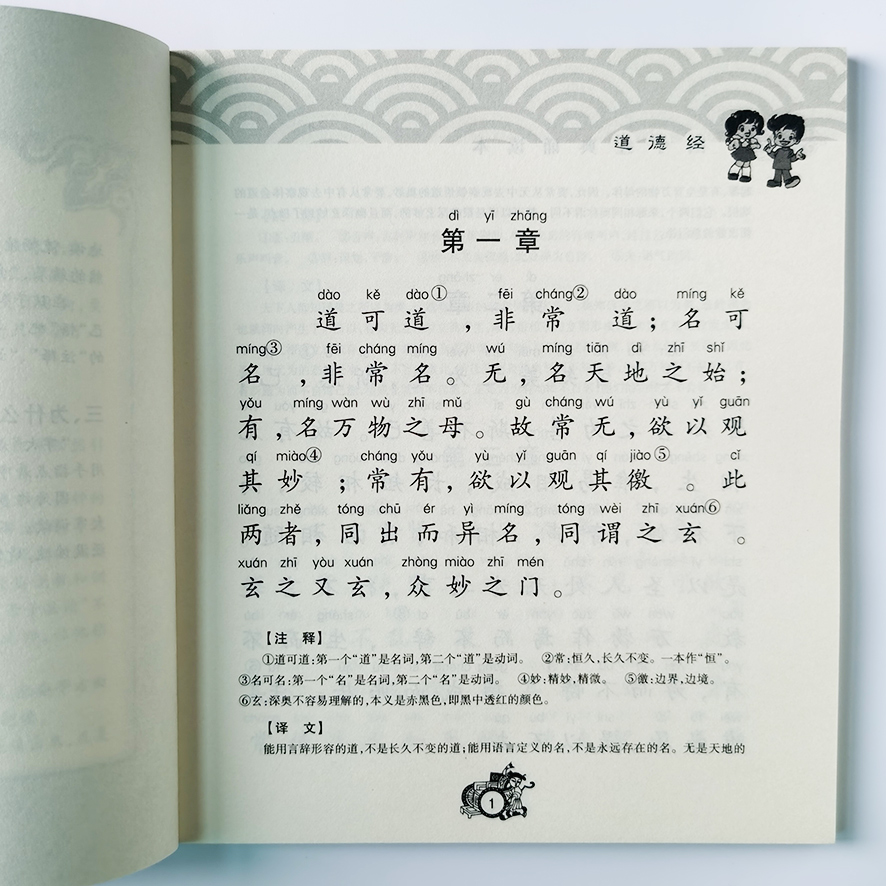 道德经
dì yī zhāng
第一章
dào kě dào① fēi cháng② dào míng kě
道可道，非常道；名可
míng③ fēi cháng míng wú míng tiān dì zhī shǐ
名，非常名。无，名天地之始；
yǒu míng wàn wù zhī mǔ gù cháng wú yù yǐ guān
有，名万物之母。故常无，欲以观
qí miào④ cháng yǒu yù yǐ guān qí jiào⑤ cǐ
其妙；常有，欲以观其徼。此
liǎng zhě tóng chū ér yì míng tóng wèi zhī xuán⑥
两者，同出而异名，同谓之玄。
xuán zhī yòu xuán zhòng miào zhī mén
玄之又玄，众妙之门。
【注 释】
①道可道：第一个“道”是名词，第二个“道”是动词。 ②常：恒久，长久不变。一本作“恒”。
③名可名：第一个“名”是名词，第二个“名”是动词。 ④妙：精妙，精微。 ⑤徼：边界，边境。
⑥玄：深奥不容易理解的，本义是赤黑色，即黑中透红的颜色。
【译 文】
能用言辞形容的道，不是长久不变的道；能用语言定义的名，不是永远存在的名。无是天地的
1